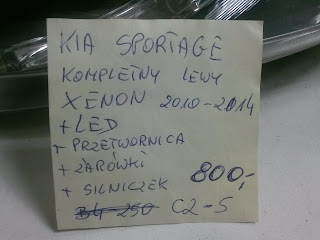 KIA SPORTAGE
KOMPLETNY LEWY
XENON 2010-2014
+ LED
+ PRZETWORNICA
+ ŻARÓWKI
+ SILNICZEK 800,-
B4-250 C2-5